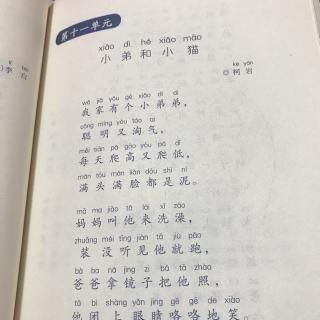 第十一单元
xiǎo dì hé xiǎo māo
小弟和小猫
kē yán
◎柯岩
wǒ jiā yǒu gè xiǎo dì di
我家有个小弟弟，
cōng míng yòu táo qì
聪明又淘气，
měi tiān pá gāo yòu pá dī
每天爬高又爬低，
mǎn tóu mǎn liǎn dōu shì ní
满头满脸都是泥。
mā ma jiào tā lái xǐ zǎo
妈妈叫他来洗澡，
zhuāng méi tīng jiàn tā jiù pǎo
装没听见他就跑，
bà ba ná jìng zi bǎ tā zhào
爸爸拿镜子把他照，
tā bì shàng yǎn jing gē gē de xiào
他闭上眼睛咯咯地笑。
李白